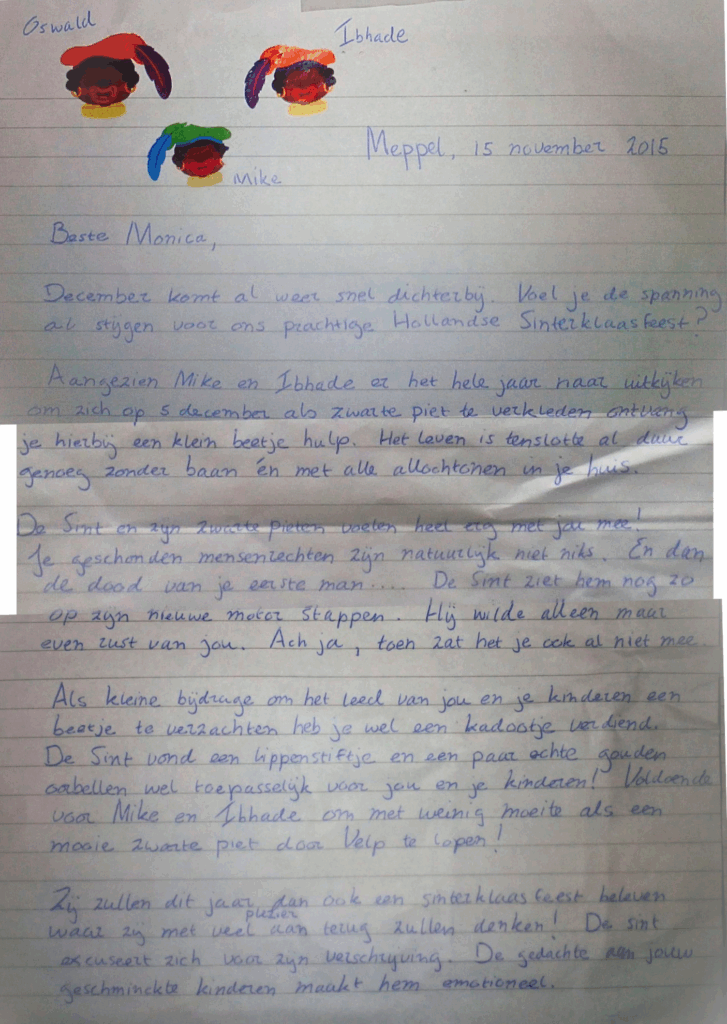 Oswald
Ibhade
Mike
Meppel, 15 november 2015
Baste Monica,
December komt al weer snel dichterbij. Voel je de spanning
al stijgen voor ons prachtige Hollandse Sinterklaasfeest?
Aangezien Mike en Ibhade er het hele jaar naar uitkijken
om zich op 5 december als zwarte piet te verkleden ontvang
je hierbij een klein beetje hulp. Het leven is tenslotte al duur
genoeg zonder baan én met alle allochtonen in je huis.
De Sint en zijn zwarte pieten voelen heel erg met jou mee!
Je geschonden mensenrechten zijn natuurlijk niet niks. En dan
de dood van je eerste man.... De Sint ziet hem nog zo
op zijn nieuwe motor stappen. Hij wilde alleen maar
even rust van jou. Ach ja, toen zat het je ook al niet mee.
Als kleine bijdrage om het leed van jou en je kinderen een
beetje te verzachten heb je wel een kadootje verdiend.
De Sint vond een lippenstiftje en een paar echte gouden
oorbellen wel toepasselijk voor jou en je kinderen! Voldoende
voor Mike en Ibhade om met weinig moeite als een
mooie zwarte piet door Velp te lopen!
Zij zullen dit jaar dan ook een sinterklaasfeest beleven
waar zij met veel plezier aan terug zullen denken! De sint
excuseert zich voor zijn verschrijving. De gedachte aan jouw
geschminckte kinderen maakt hem emotioneel.